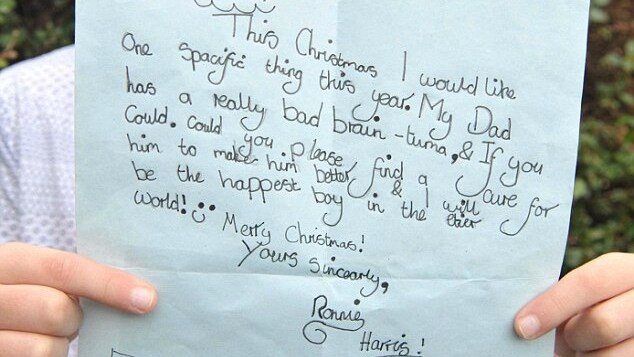 This Christmas I would like
One spacific thing this year. My Dad
has a really bad brain-tuma, & If you
Could. Could you please find a cure for
him to make him better & I will
be the happest boy in the
world!
Merry Christmas!
Yours sincearly,
Ronnie
Harris!